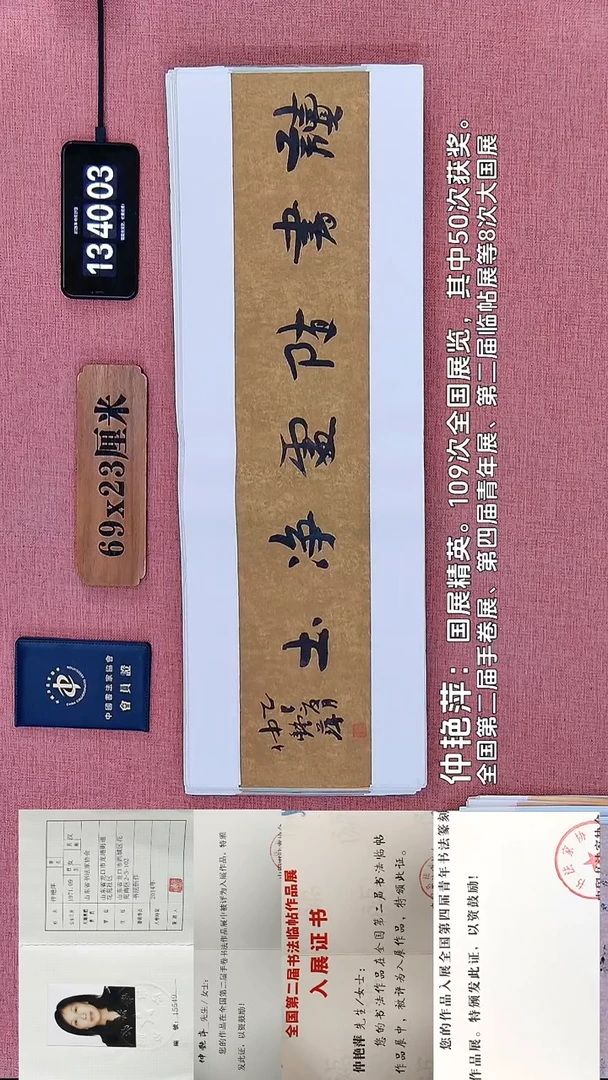 中國書法家協會
會員證
69x23厘米
13 40 03
讀書随處淨土
乙巳夏月
仲艳萍
仲艳萍:国展精英。109次全国展览,其中50次获奖。
全国第二届手卷展、第四届青年展、第二届临帖展等8次大国展
仲艳萍
1971.09
山东省书法家协会
2014年
仲艳萍 先生/女士:
您的作品在全国第二届手卷书法作品展中被评为入展作品,特颁
发此证,以资鼓励!
全国第二届书法临帖作品展
入展证书
仲艳萍 先生/女士:
您的书法作品在全国第二届书法临帖
作品展中,被评为入展作品,特颁此证。
您的作品入展全国第四届青年书法篆刻
作品展。特颁发此证,以资鼓励!